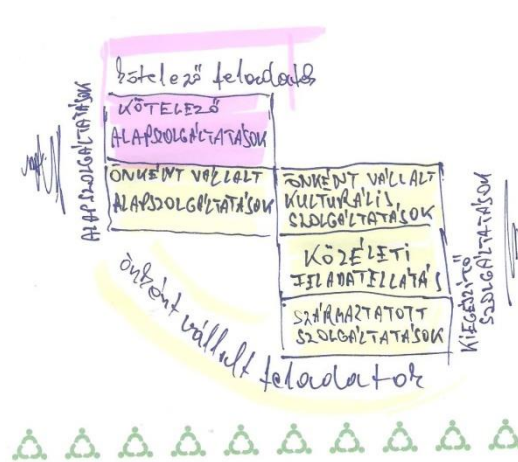 kötelező feladatok
KÖTELEZŐ
ALAPSZOLGÁLTATÁSOK
ALAPSZOLGÁLTATÁSOK
ÖNKÉNT VÁLLALT
ALAPSZOLGÁLTATÁSOK
ÖNKÉNT VÁLLALT
KULTURÁLIS
SZOLGÁLTATÁSOK
KÖZÉLETI
FELADATELLÁTÁS
SZÁRMAZTATOTT
SZOLGÁLTATÁSOK
KIEGÉSZÍTŐ
SZOLGÁLTATÁSOK
önként vállalt feladatok